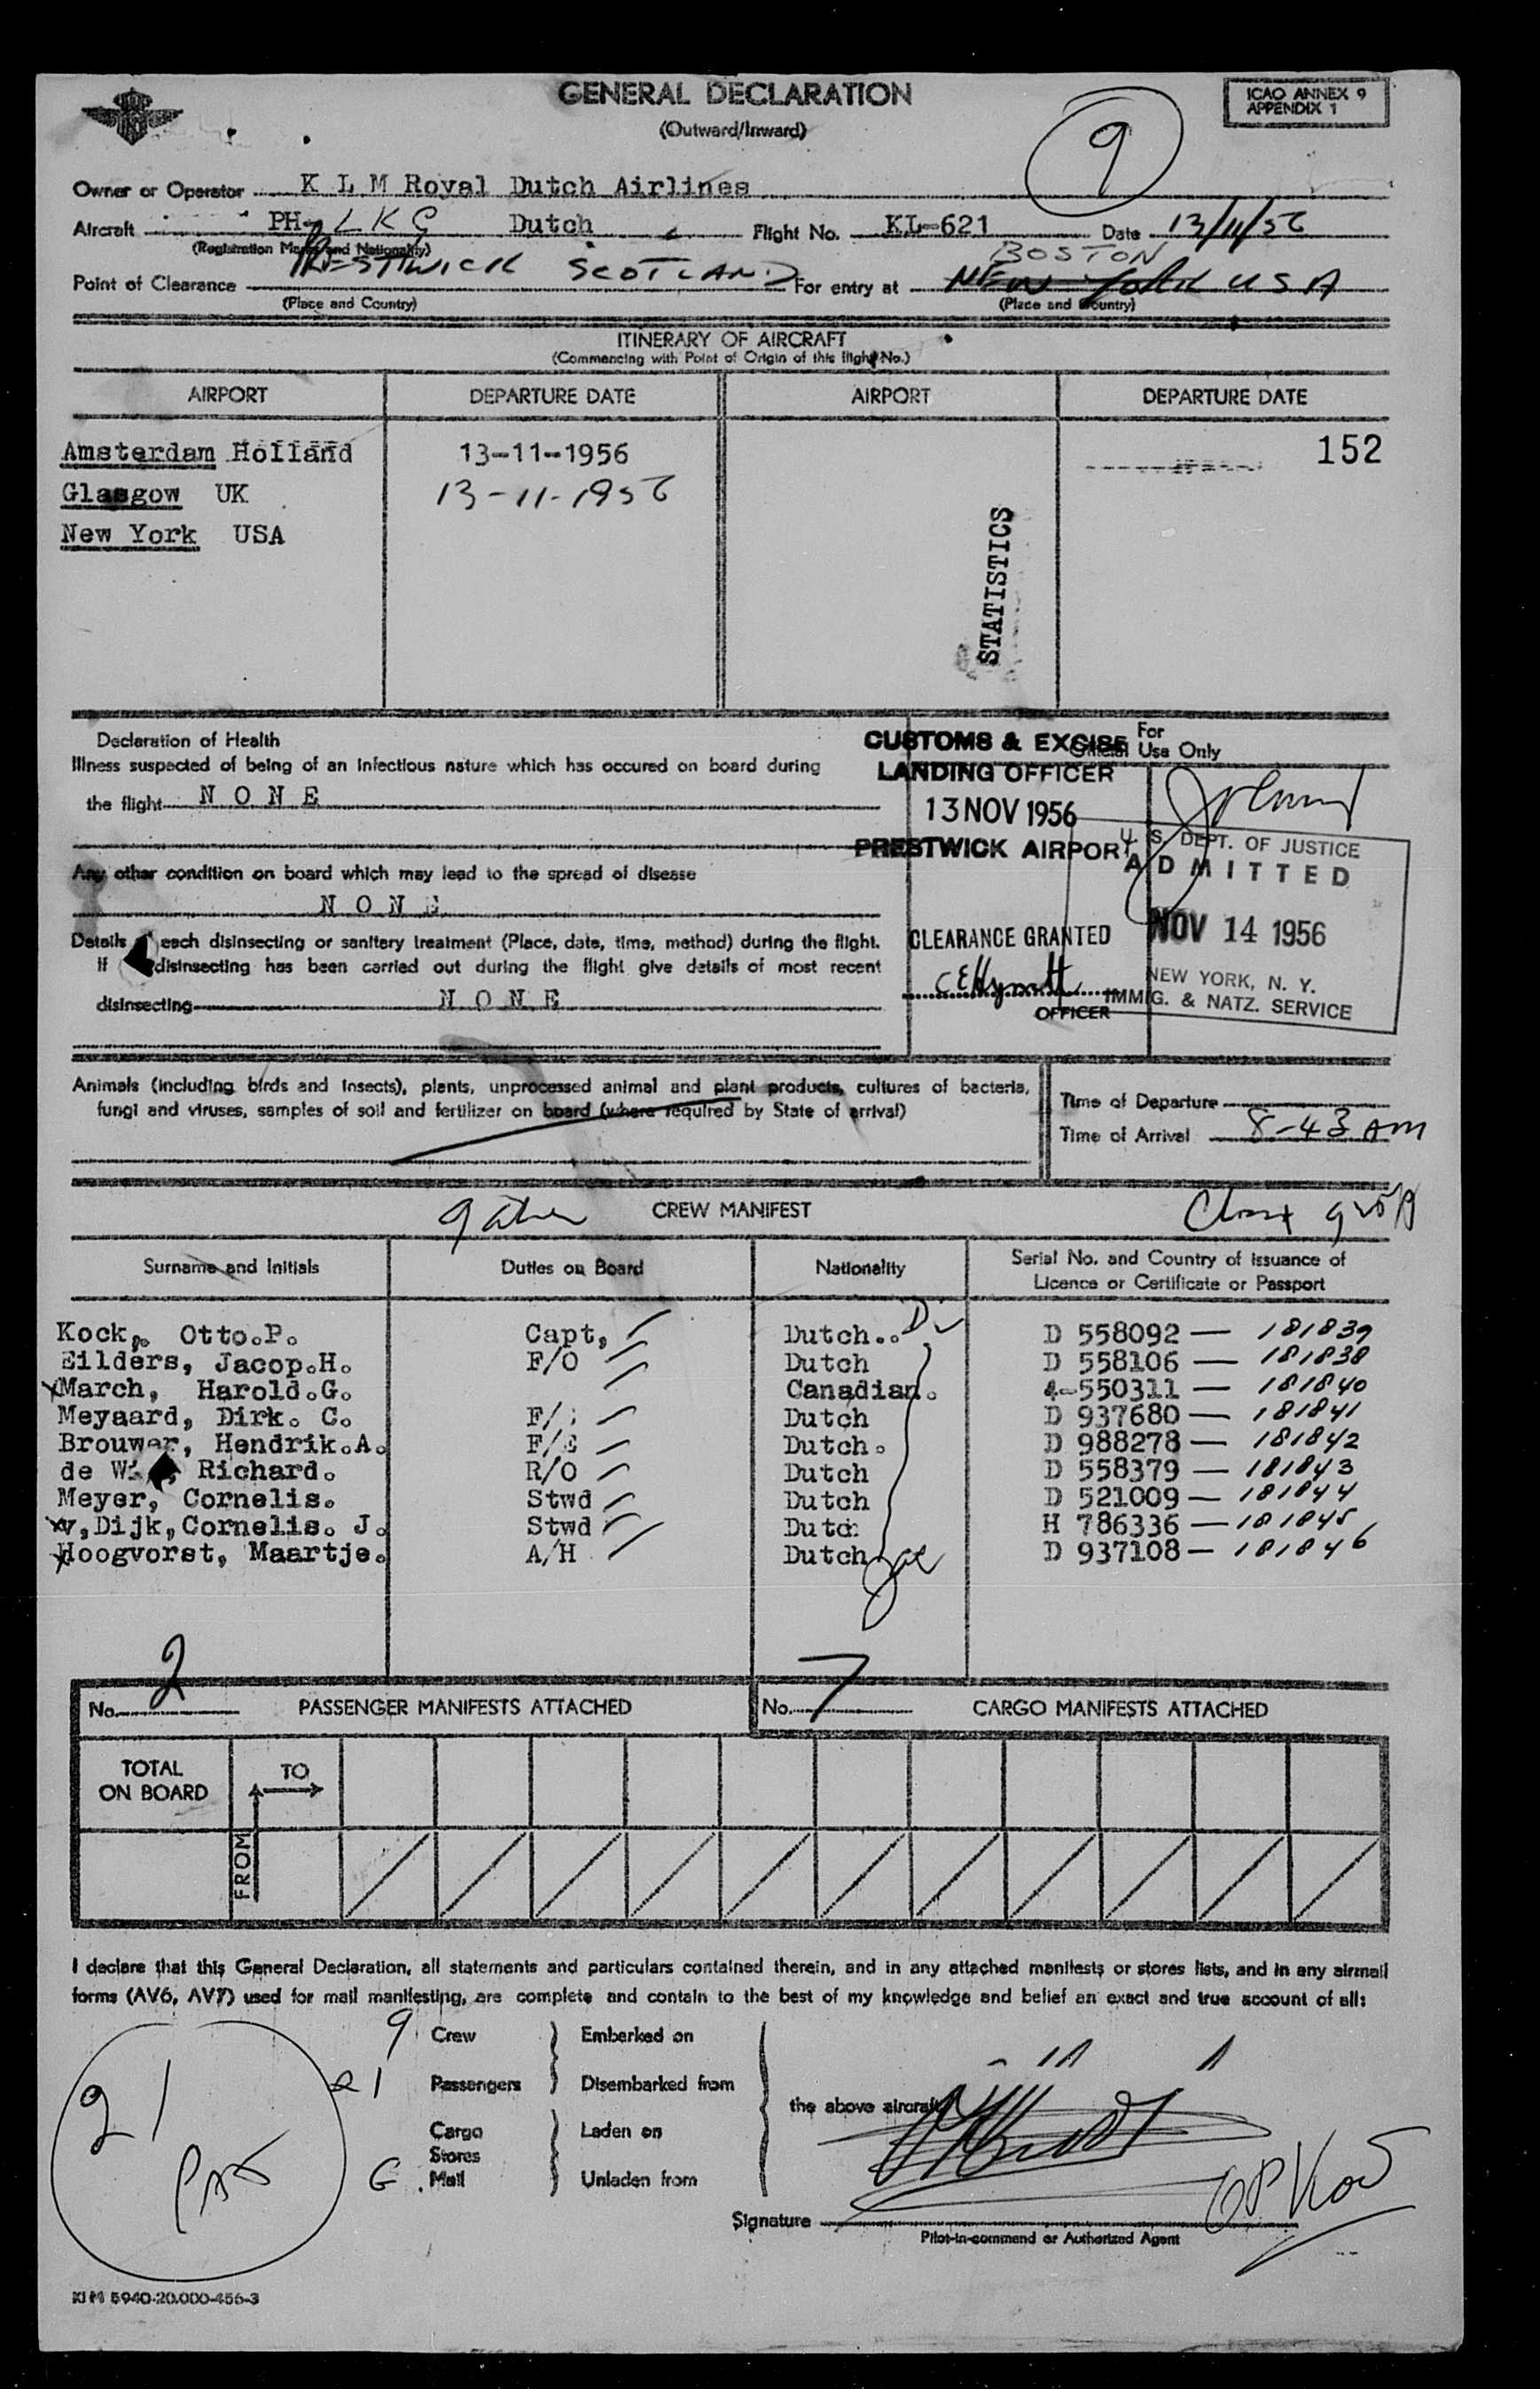 GENERAL DECLARATION
(Outward/Inward)
ICAO ANNEX 9
APPENDIX 1
9
Owner or Operator K L M Royal Dutch Airlines
Aircraft PH-LKG Dutch Flight No. KL-621 Date 13/11/56
(Registration Marks and Nationality)
BOSTON
Point of Clearance PRESTWICK SCOTLAND For entry at NEW YORK USA
(Place and Country) (Place and Country)
ITINERARY OF AIRCRAFT
(Commencing with Point of Origin of this flight No.)
AIRPORT DEPARTURE DATE AIRPORT DEPARTURE DATE
Amsterdam Holland 13-11-1956 152
Glasgow UK 13-11-1956
New York USA
STATISTICS
Declaration of Health
Illness suspected of being of an infectious nature which has occured on board during
the flight N O N E
Any other condition on board which may lead to the spread of disease
N O N E
Details of each disinsecting or sanitary treatment (Place, date, time, method) during the flight.
If disinsecting has been carried out during the flight give details of most recent
disinsecting N O N E
For
Official Use Only
CUSTOMS & EXCISE
LANDING OFFICER
13 NOV 1956
PRESTWICK AIRPORT
CLEARANCE GRANTED
OFFICER
U. S. DEPT. OF JUSTICE
A D M I T T E D
NOV 14 1956
NEW YORK, N. Y.
IMMIG. & NATZ. SERVICE
Animals (including birds and insects), plants, unprocessed animal and plant products, cultures of bacteria,
fungi and viruses, samples of soil and fertilizer on board (where required by State of arrival)
Time of Departure
Time of Arrival 8-43 AM
CREW MANIFEST
Surname and Initials Duties on Board Nationality Serial No. and Country of Issuance of
Licence or Certificate or Passport
Kock, Otto.P. Capt, Dutch.. D 558092 — 181839
Eilders, Jacop.H. F/O Dutch D 558106 — 181838
March, Harold.G. Canadian. 4-550311 — 181840
Meyaard, Dirk. C. F/ Dutch D 937680 — 181841
Brouwer, Hendrik.A. F/E Dutch. D 988278 — 181842
de Richard. R/O Dutch D 558379 — 181843
Meyer, Cornelis. Stwd Dutch D 521009 — 181844
v,Dijk,Cornelis. J. Stwd Dutch H 786336 — 181845
Hoogvorst, Maartje. A/H Dutch D 937108 — 181846
No. 2 PASSENGER MANIFESTS ATTACHED No. 7 CARGO MANIFESTS ATTACHED
TOTAL
ON BOARD
TO
FROM
I declare that this General Declaration, all statements and particulars contained therein, and in any attached manifests or stores lists, and in any airmail
forms (AV6, AV7) used for mail manifesting, are complete and contain to the best of my knowledge and belief an exact and true account of all:
9 Crew Embarked on
21 Passengers Disembarked from
the above aircraft
Cargo Laden on
Stores
Mail Unladen from
21
Signature
O P Kock
Pilot-in-commend or Authorized Agent
KLM 5940-20.000-456-3